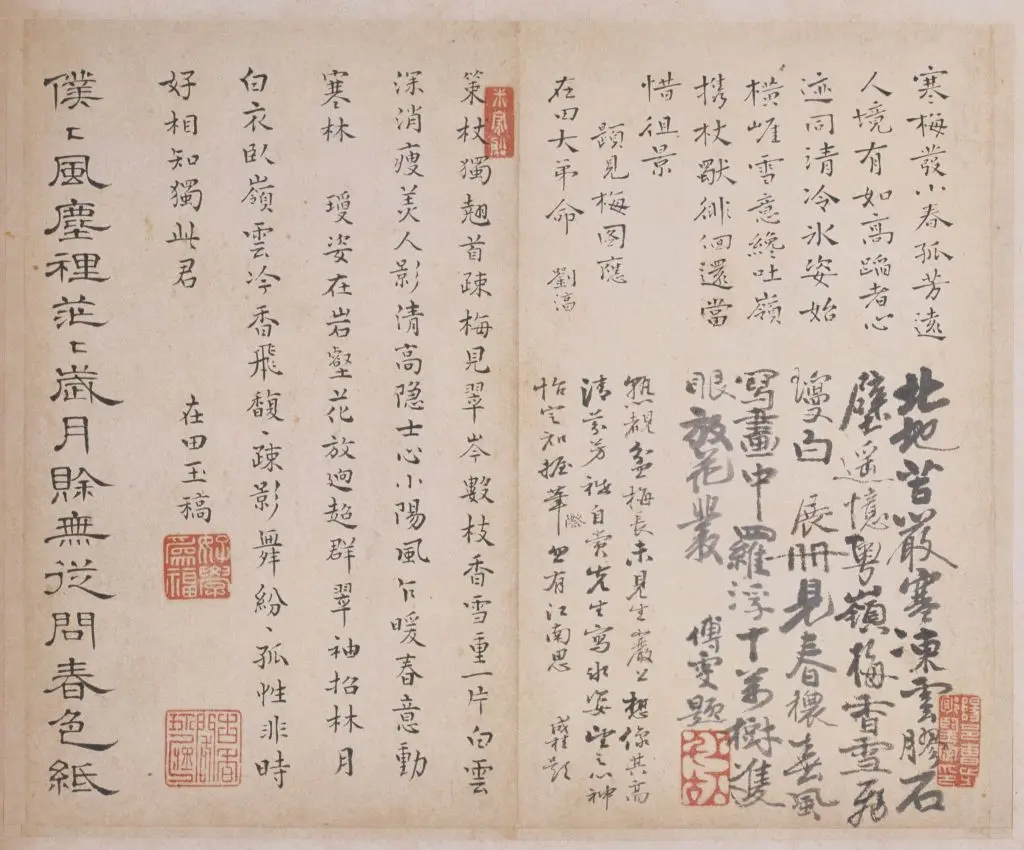 寒梅發小春孤芳遠
人境有如高蹈者心
迹同清冷氷姿始
橫崖雪意纔吐嶺
携杖獸徘徊還當
惜徂景
題見梅圖應
在田大弟命
劉滈
北地苦嚴寒凍雲膠石
壁遥憶粤嶺梅香雪飛
瓊白
展冊見春穠春風
寫畫中羅浮十萬樹遶
眼放花叢
傅雯題
熟覩盆梅長未見生巖谷想像其高
清芬芳秪自賞先生寫氷姿望之心神
怡定知握筆際思有江南思
策杖獨翹首疎梅見翠岑數枝香雪重一片白雲
深消瘦美人影清高隐士心小陽風乍暖春意動
寒林
瓊姿在岩壑花放逈超群翠袖招林月
白衣臥嶺雲冷香飛馥〻疎影舞紛〻孤性非時
好相知獨此君
在田玉稿
僕〻風塵裡茫〻歲月賒無從問春色紙